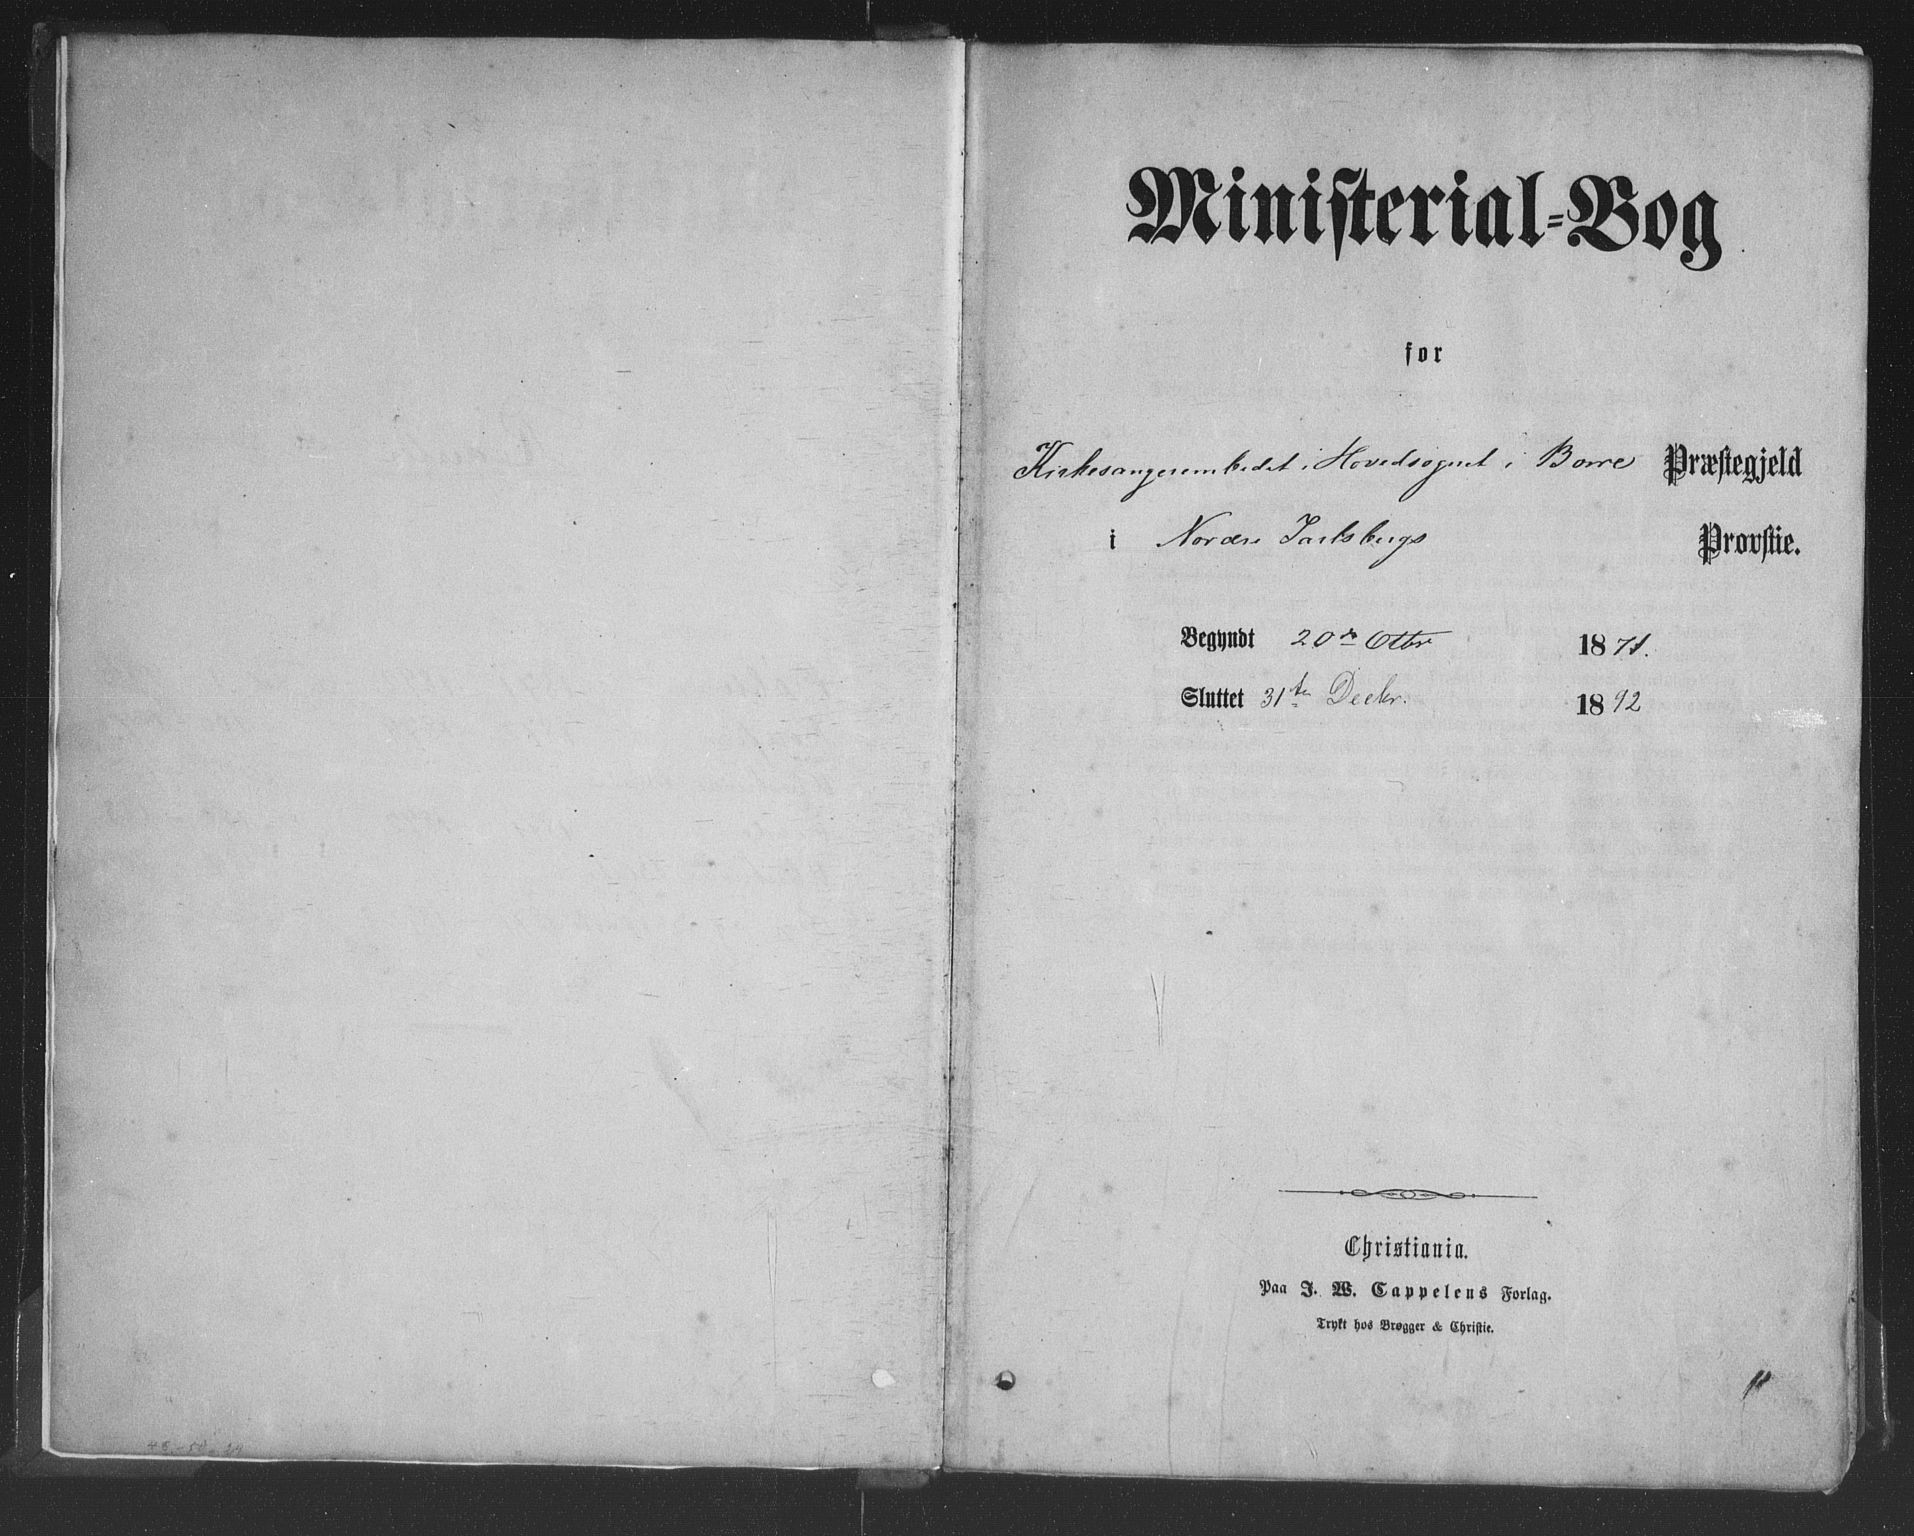 Ministerial-Bog
for
Kirkesangerembedet i Hovedsognet i Borre Præstegjeld
i Nordre Jarlsbergs Provstie.
Begyndt 20de Octbr 1871.
Sluttet 31te Decbr. 1892
Christiania.
Paa J. W. Cappelens Forlag.
Trykt hos Brøgger & Christie.